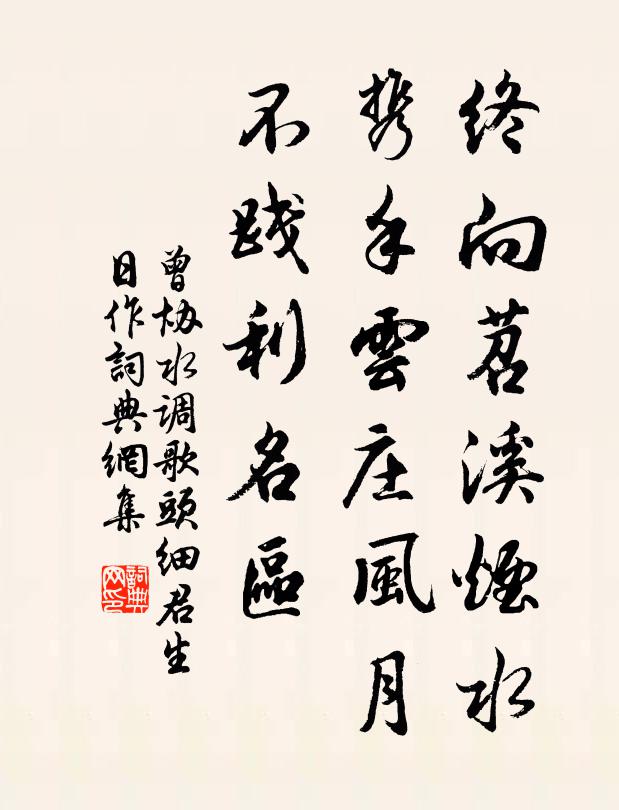 終向苕溪煙水
携手雲庄風月
不践利名區
曾协水调歌頭細君生
日作詞典網集
詞典
网印